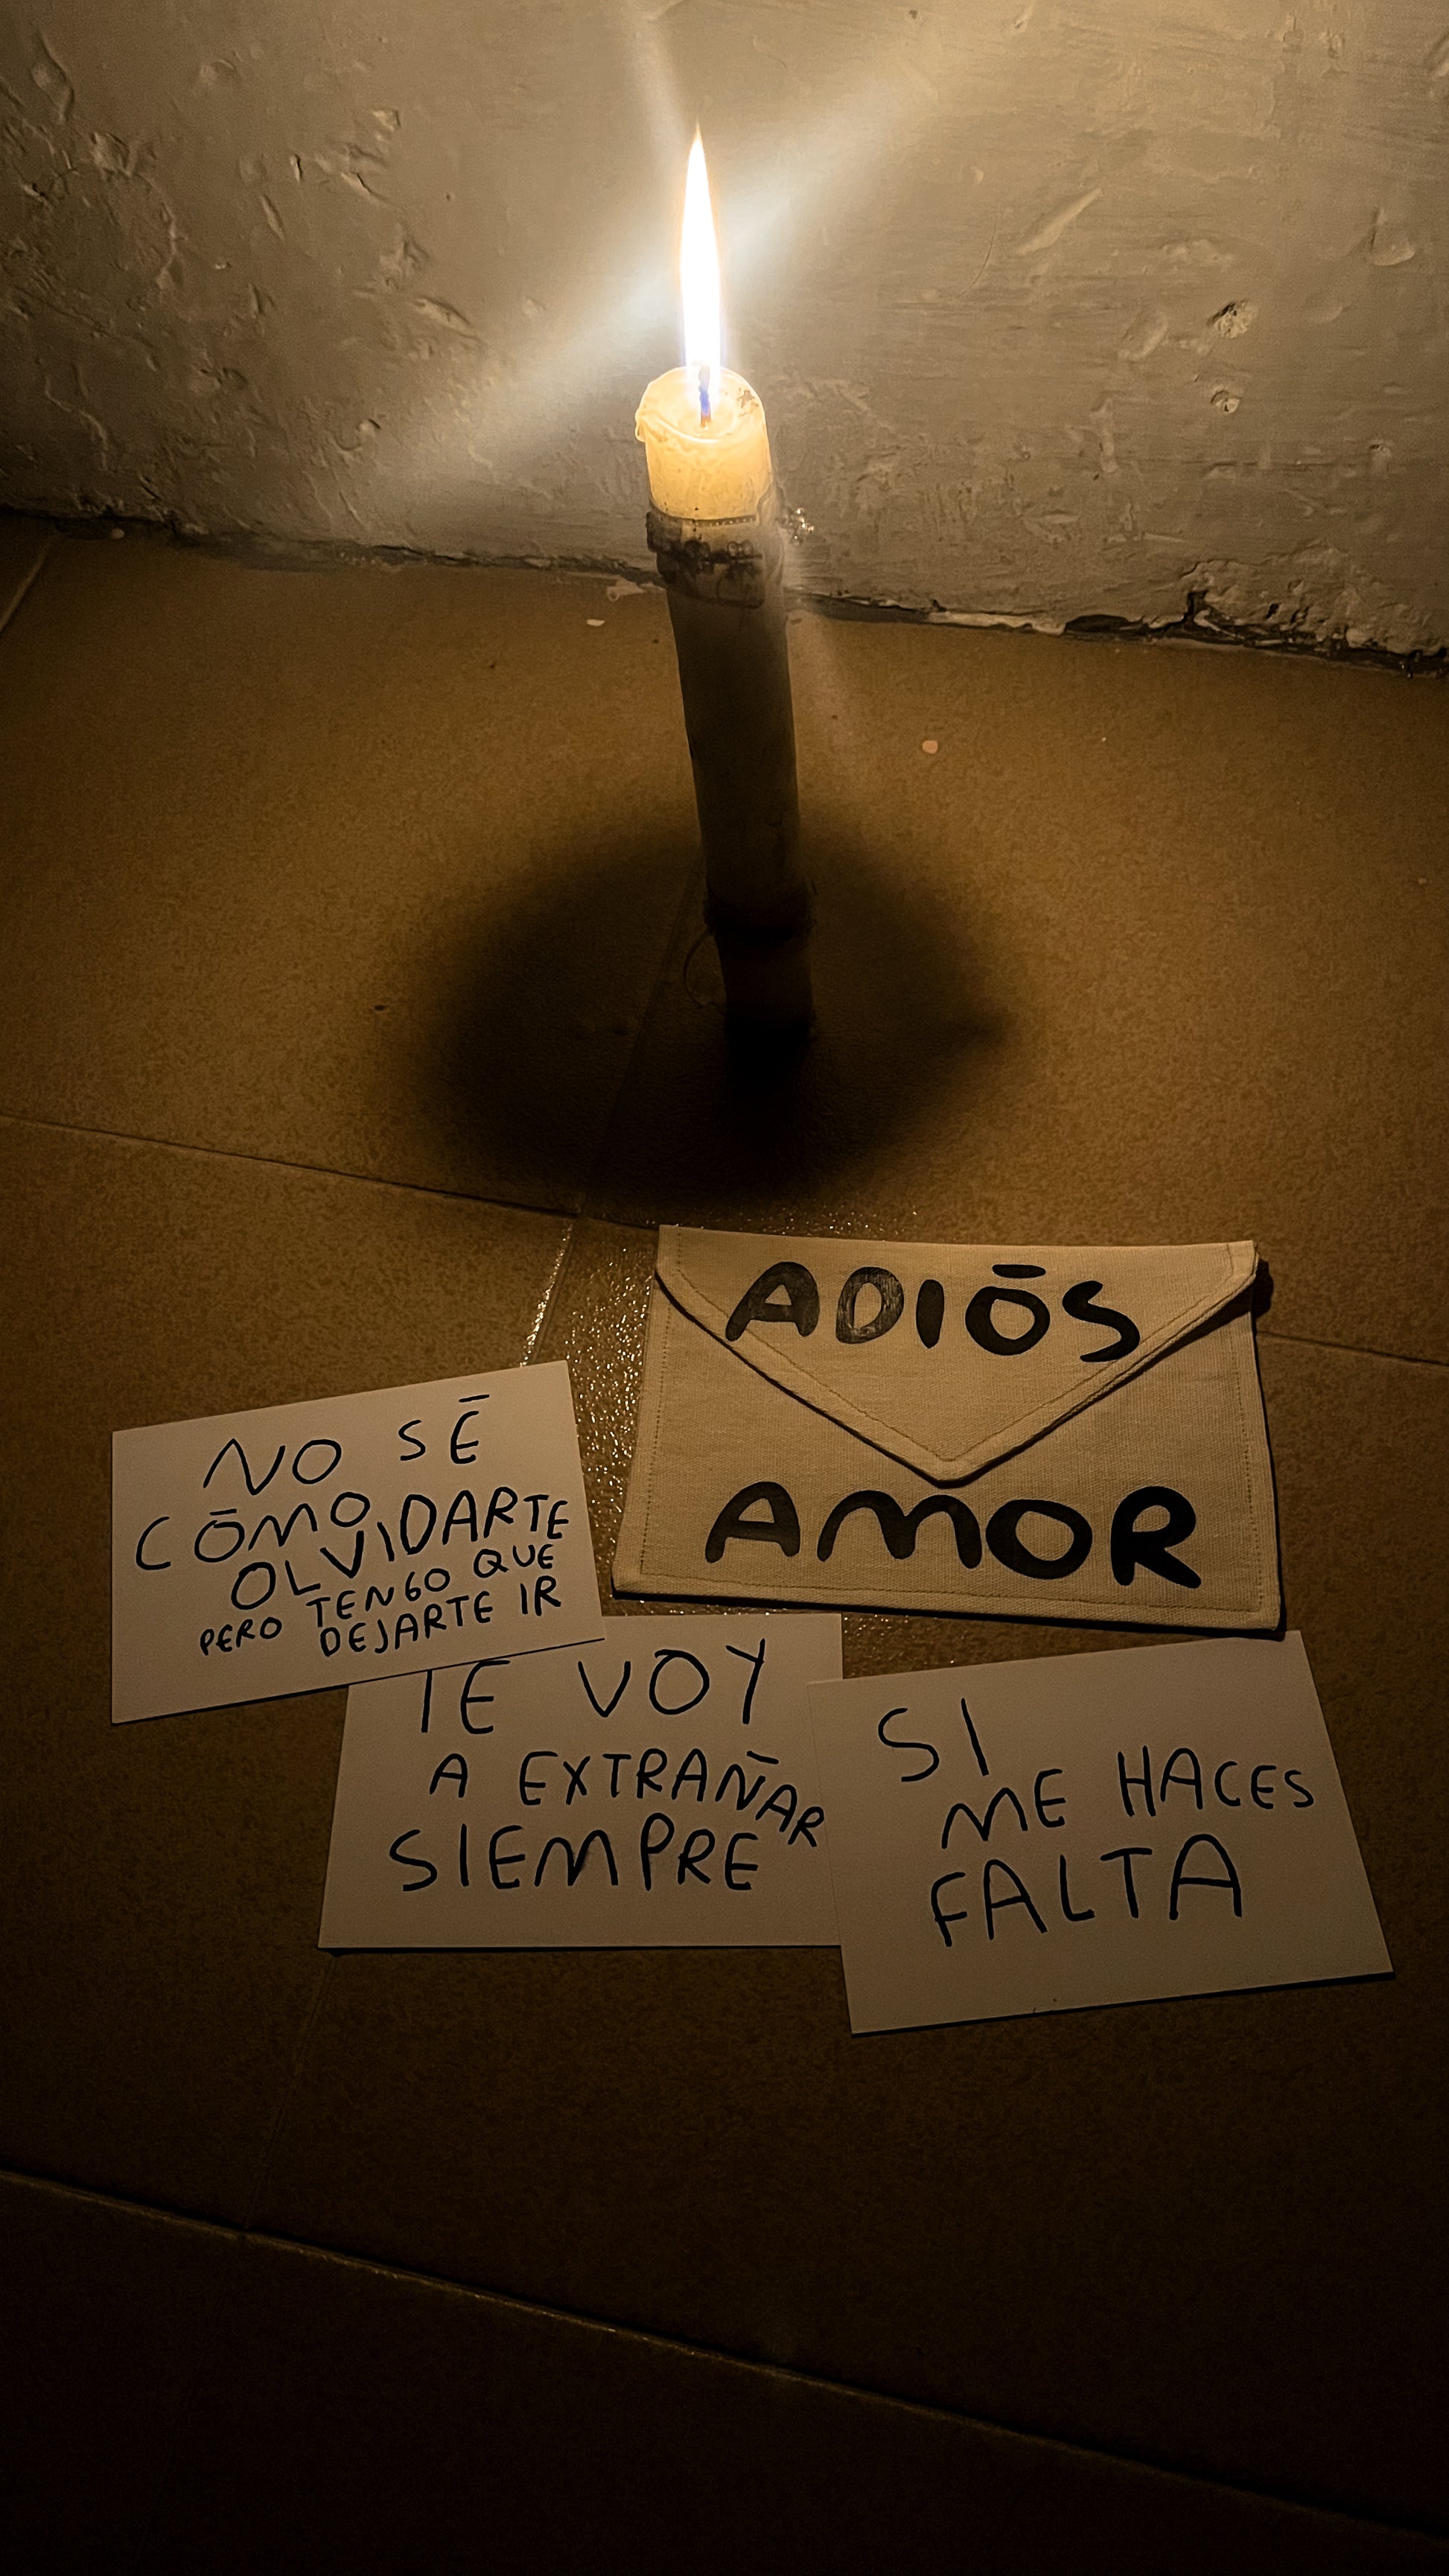 ADIŌS
AMOR
NO SĒ
CŌMO
OLVIDARTE
PERO TENGO QUE
DEJARTE IR
TE VOY
A EXTRAÑAR
SIEMPRE
SI
ME HACES
FALTA